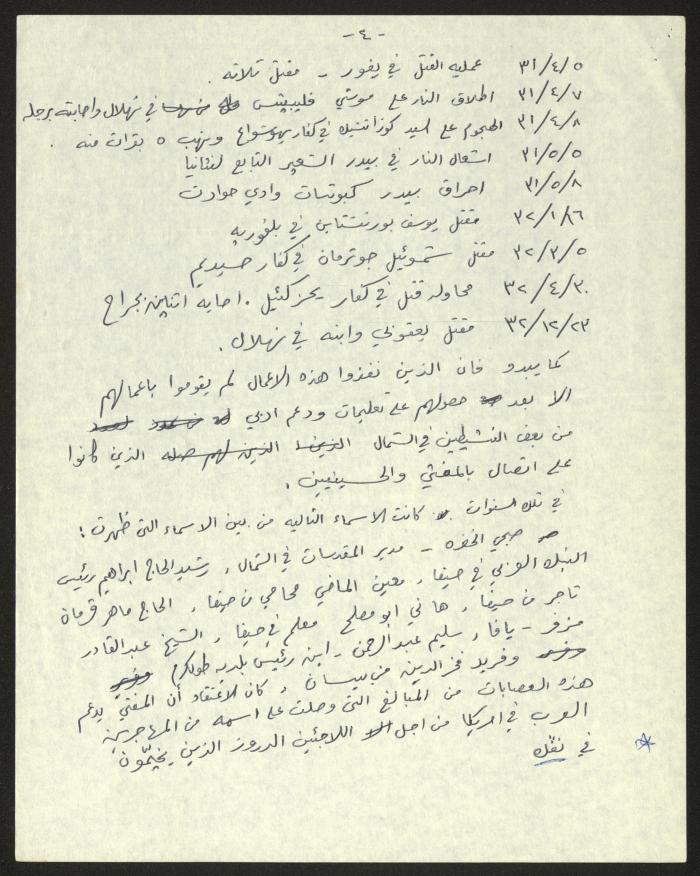 - ٤ -
٣١/٤/٥ عمليه القتل في يغور - مقتل ثلاثه .
٣١/٤/٧ اطلاق النار على موشي فليبيتس في نهلال واصابته برجله
٣١/٤/٨ الهجوم على السيد في كفار يهوشواع ونهب ٥ بقرات منه .
٣١/٥/٥ اشعال النار في بيدر الشعير التابع لنتانيا
٣١/٥/٨ احراق بيدر كبوتسات وادي حوارث
٣٢/١/١٦ مقتل يوسف بورنشتاين في بلفوريه
٣٢/٣/٥ مقتل شموئيل جوترمان في كفار حسيديم
٣٢/٤/٣٠ محاوله قتل في كفار يحزكئيل . اصابه اثنين بجراح
٣٢/١٢/٢٣ مقتل يعقوبي وابنه في نهلال .
كما يبدو فان الذين نفذوا هذه الاعمال لم يقوموا باعمالهم
الا بعد حصولهم على تعليمات ودعم ادبي
من بعض النشيطين في الشمال الذين كانوا
على اتصال بالمفتي والحسينيين .
في تلك السنوات كانت الاسماء التاليه من بين الاسماء التي ظهرت :
صبحي الخضره - مدير المقدسات في الشمال ، رشيد الحاج ابراهيم رئيس
البنك العربي في حيفا ، معين الماضي محامي من حيفا ، الحاج ماهر قرمان
تاجر من حيفا ، هاني ابو مصلح معلم في حيفا ، الشيخ عبد القادر
مزفر - يافا ، سليم عبد الرحمن - ابن رئيس بلديه طولكرم
وفريد فخر الدين من بيسان ، كان الاعتقاد أن المفتي يدعم
هذه العصابات من المبالغ التي وصلت على اسمه من المهاجرين
العرب في امريكا من اجل اللاجئين الدروز الذين يخيّمون
في نقله